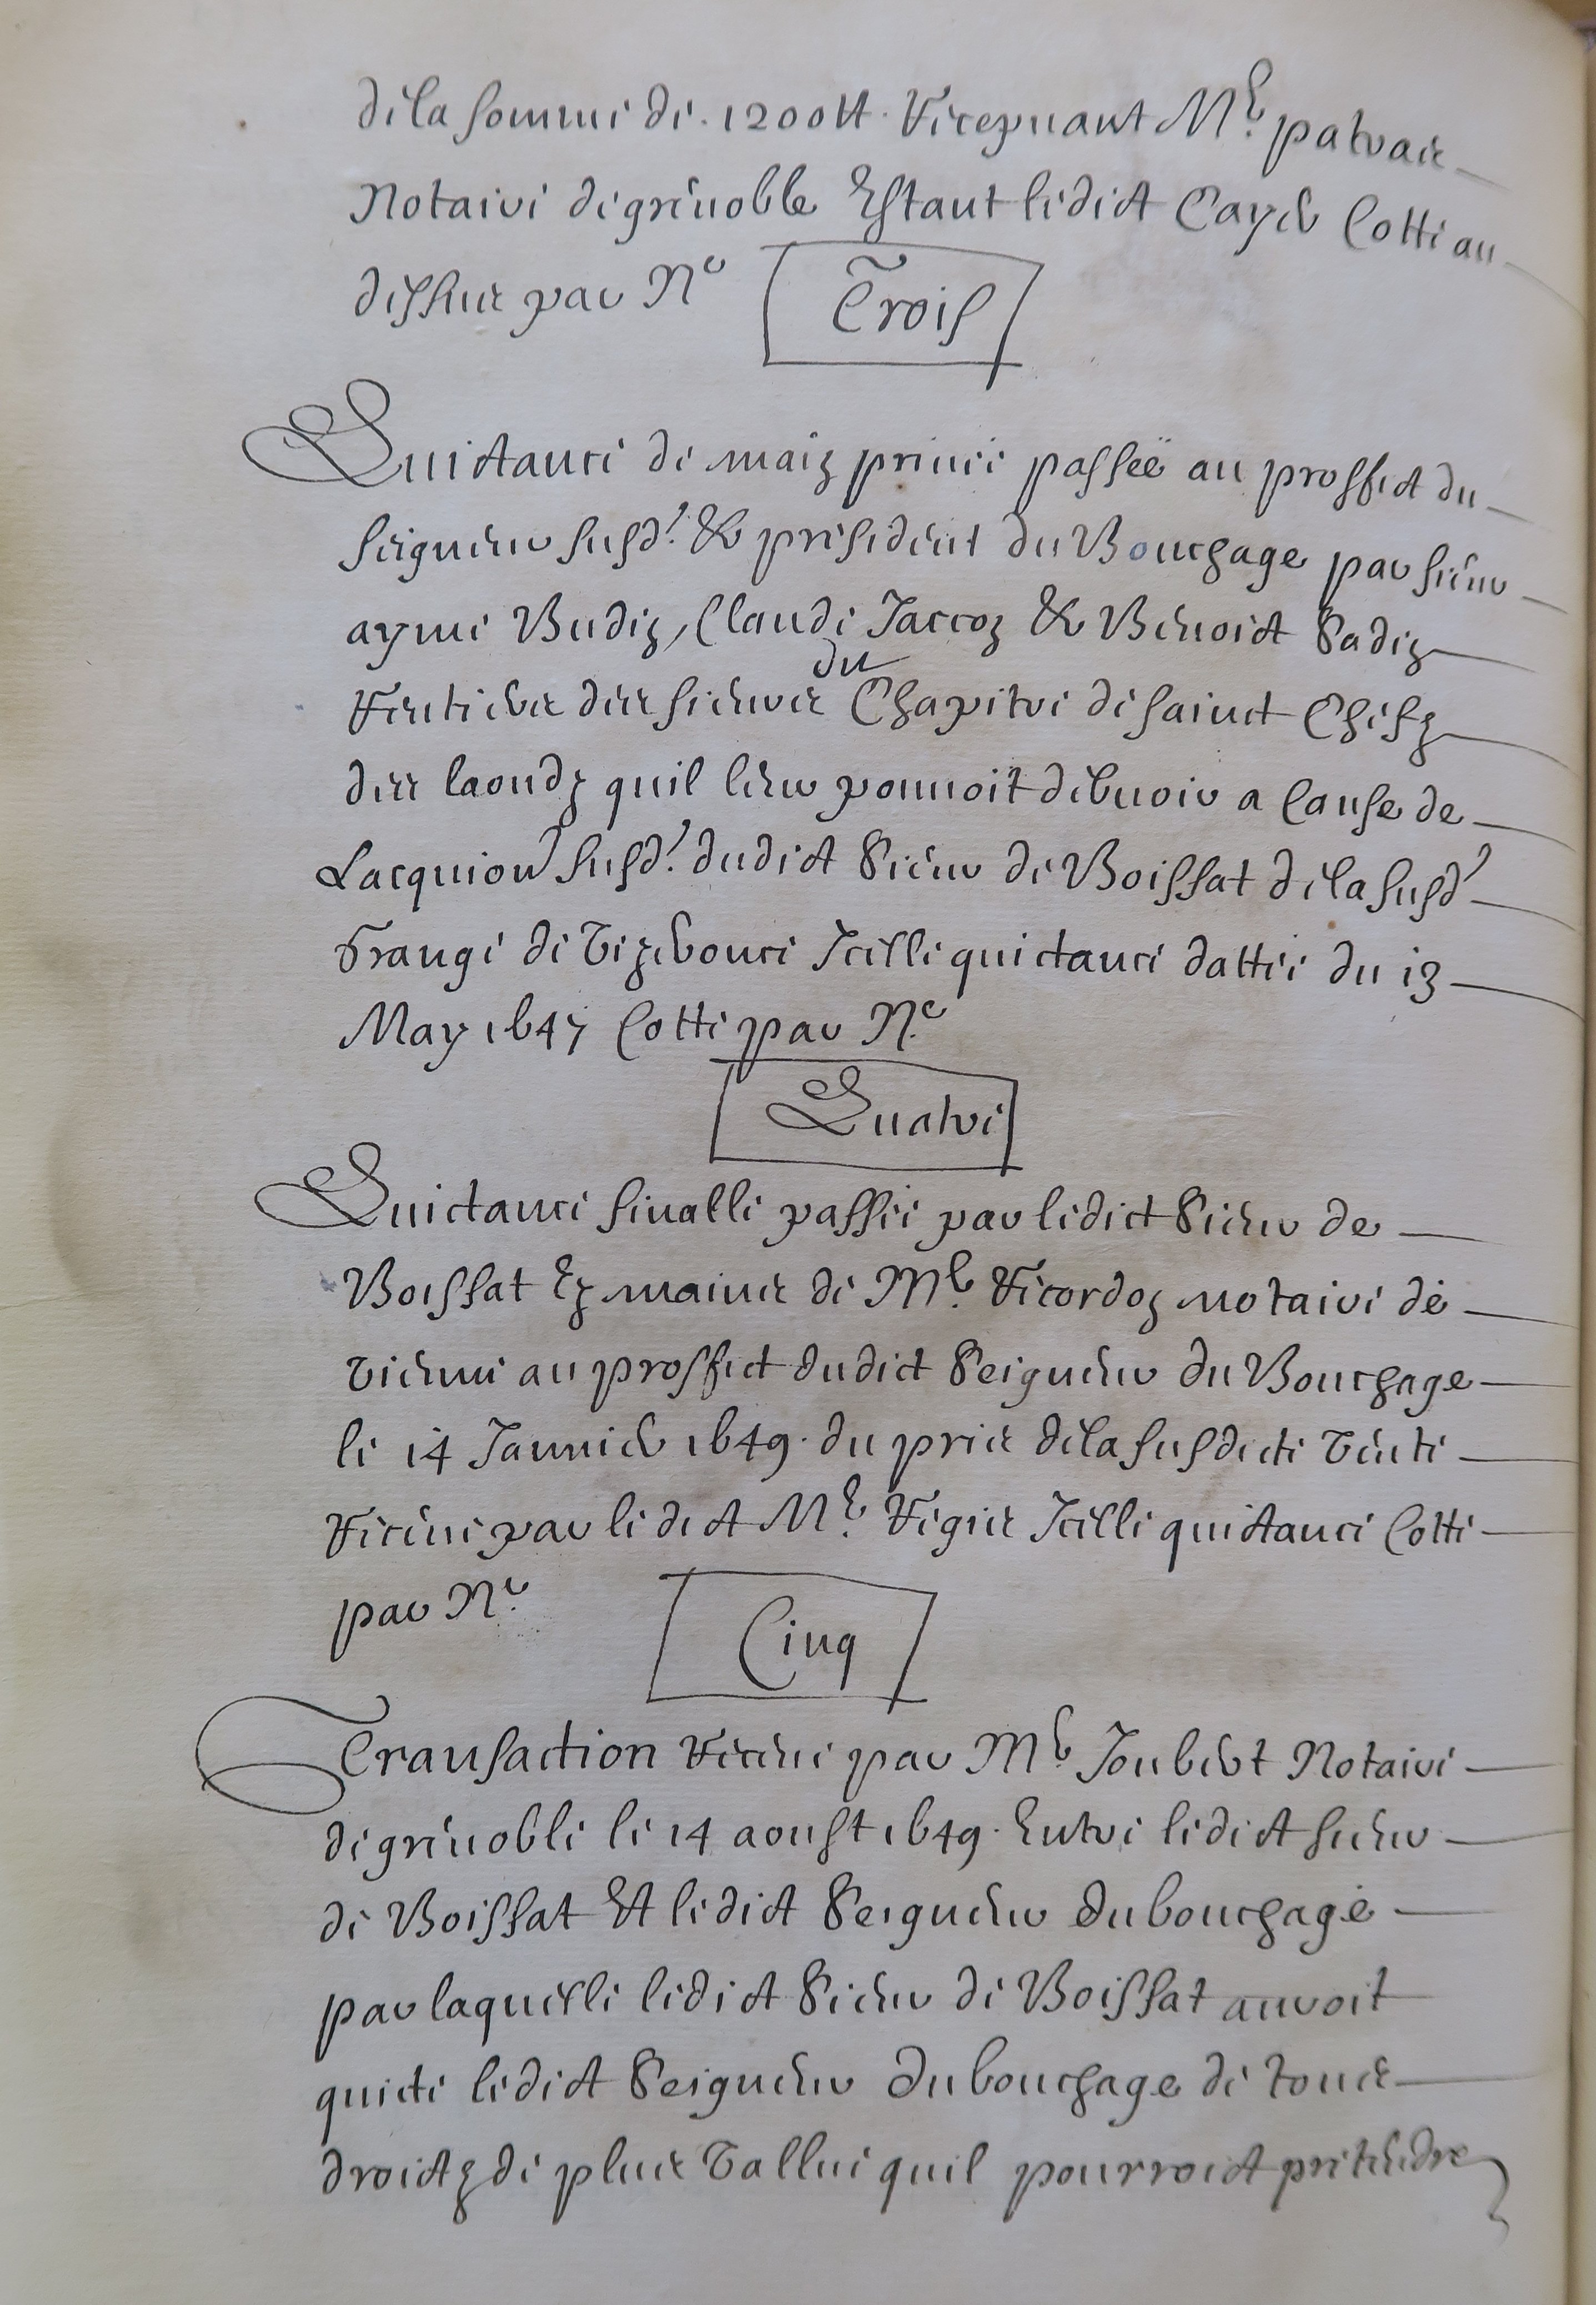 de la somme de 1200 ₶ Recepuant Mʳ patras
Notaire de grenoble Estant ledict Cayer Cotté au
dessus par Nᵒ Trois
Quictance de maiz prinée passeë au proffict du
seigneur susd.ᵗ & president du Bouchage par sieur
ayme Budiz, Claude Jaccoz & Benoict Sadiz
Rentiers des sieurs du Chapitre de sainct Chefz
des laoudz quil leur pouuoit debuoir a Cause de
Lacquion susd.ᵗ dudict Sieur de Boissat de la susd.ᵗ
Grange de Vizeronce Icelle quictance dattée du 13
May 1647 Cotté par N.ᵒ
Quatre
Quictance finalle passée par ledict Sieur de
Boissat Ez mains de Mʳ. Ricordoz notaire de
Vienne au proffict dudict Seigneur du Bouchage
le 14 Januier 1649. du prix de la susdicte Vente
Receue par ledict Mʳ. Regis Icelle quictance Cotté
par N.ᵒ
Cinq
Transaction Receue par Mʳ. Joubert Notaire
de grenoble le 14 aoust 1649. Entre ledict sieur
de Boissat Et ledict Seigneur du bouchage
par laquelle ledict Sieur de Boissat auroit
quicté ledict Seigneur du bouchage de tous
droictz de plus Vallue quil pourroict pretendre